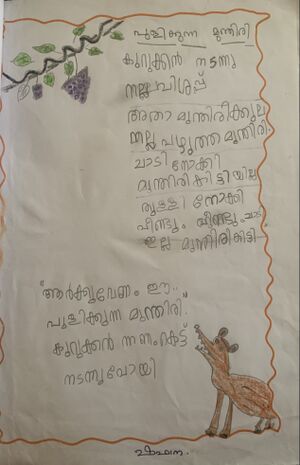 പുളിക്കുന്ന മുന്തിരി
കുറുക്കൻ നടന്നു
നല്ല വിശപ്പ്
അതാ മുന്തിരിക്കുല
നല്ല പഴുത്ത മുന്തിരി.
ചാടി നോക്കി
മുന്തിരികിട്ടിയില്ല
തുള്ളി നോക്കി
വീണ്ടും വീണ്ടും ചാടി
ഇല്ല മുന്തിരികിട്ടി
"ആർക്കുവേണം ഈ..
പുളിക്കുന്ന മുന്തിരി."
കുറുക്കൻ നാണംകെട്ട്
നടന്നുപോയി